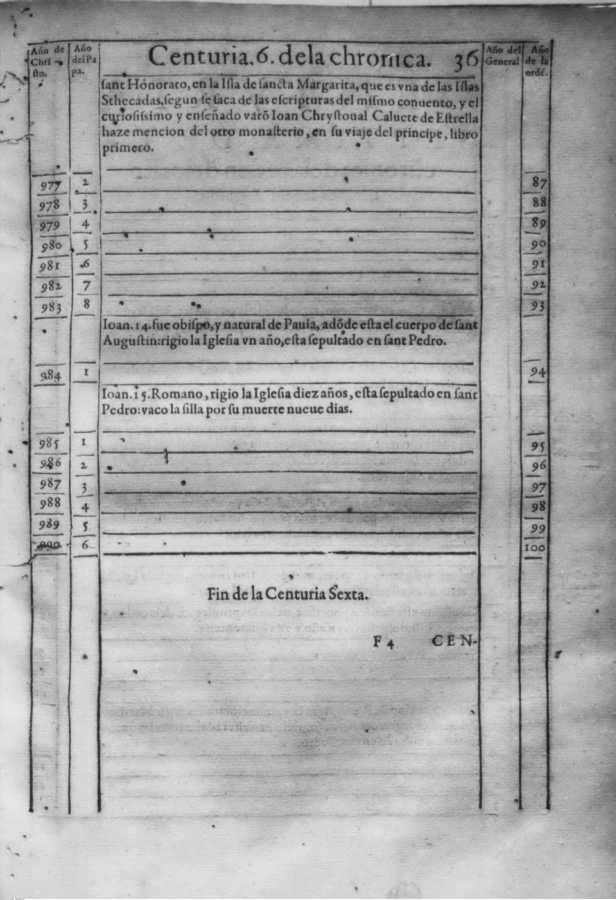 Año de Christo.
Año del Papa.
Centuria.6. dela chronica. 36
Año del General
Año de la ordē.
sant Honorato, en la Isla de sancta Margarita, que es vna de las Islas
Sthecadas, segun se saca de las escripturas del mismo conuento, y el
curiosissimo y enseñado varō Ioan Chrystoual Caluete de Estrella
haze mencion del otro monasterio, en su viaje del principe, libro
primero.
977 2 87
978 3 88
979 4 89
980 5 90
981 6 91
982 7 92
983 8 93
Ioan.14.fue obispo, y natural de Pauia, adōde esta el cuerpo de sant
Augustin:rigio la Iglesia vn año, esta sepultado en sant Pedro.
984 1 94
Ioan.15.Romano, rigio la Iglesia diez años, esta sepultado en sant
Pedro: vaco la silla por su muerte nueue dias.
985 1 95
986 2 96
987 3 97
988 4 98
989 5 99
990 6 100
Fin de la Centuria Sexta.
F 4 CEN-